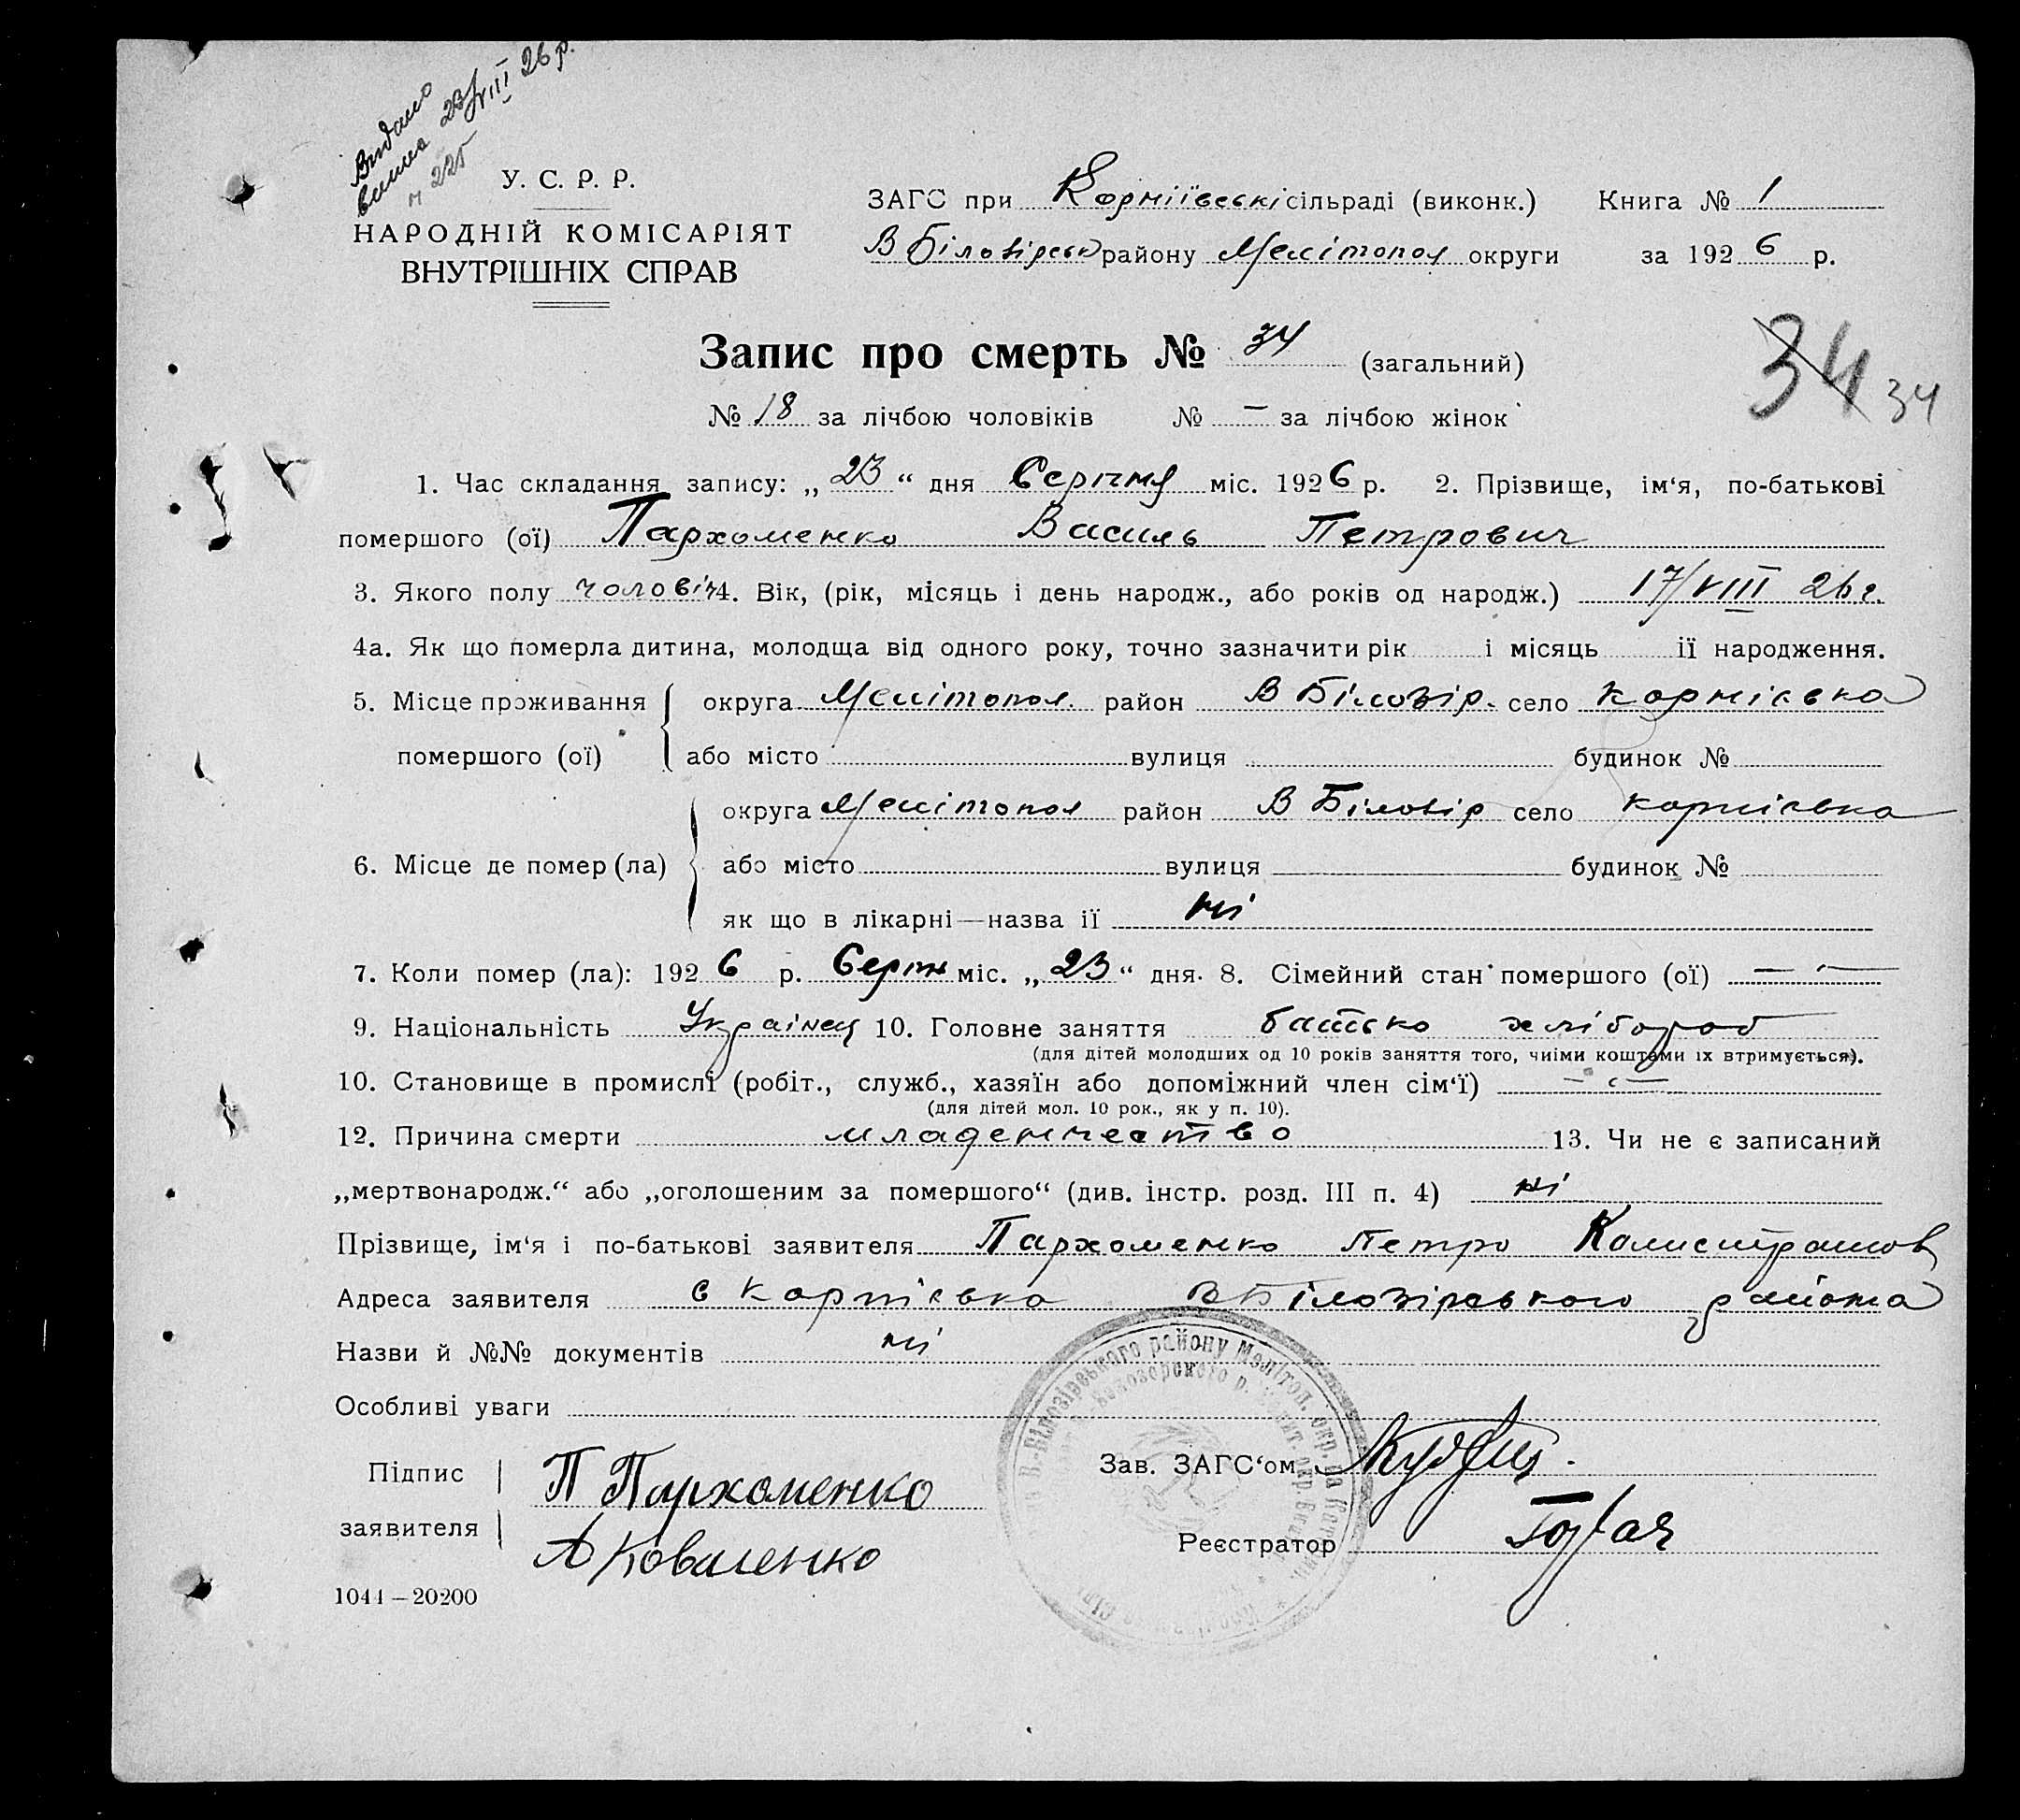 Видано
витяг 23/VIII 26 р.
ч 225
У. С. Р. Р.
НАРОДНІЙ КОМІСАРІЯТ
ВНУТРІШНІХ СПРАВ
ЗАГС при Корніївські сільраді (виконк.) Книга № 1
В Біловірськ району Мелітопол округи за 1926 р.
Запис про смерть № 34 (загальний)
34 34
№ 18 за лічбою чоловіків № — за лічбою жінок
1. Час складання запису: „23“ дня Серпня міс. 1926 р. 2. Прізвище, ім‘я, по-батькові
помершого (ої) Пархоменко Василь Петрович
3. Якого полу чоловіч 4. Вік, (рік, місяць і день народж., або років од народж.) 17/VIII 26 г.
4а. Як що померла дитина, молодща від одного року, точно зазначити рік і місяць її народження.
5. Місце проживання округа Мелітопол. район В Біловір. село Корніївка
помершого (ої) або місто вулиця будинок №
округа Мелітопол район В Біловір село Корніївка
6. Місце де помер (ла) або місто вулиця будинок №
як що в лікарні—назва її ні
7. Коли помер (ла): 1926 р. Серпн міс. „23“ дня. 8. Сімейний стан помершого (ої) — „ —
9. Національність Українец 10. Головне заняття батько хлібороб
(для дітей молодших од 10 років заняття того, чиїми коштами їх втримується).
10. Становище в промислі (робіт., служб., хазяїн або допоміжний член сім‘ї) — „ —
(для дітей мол. 10 рок., як у п. 10).
12. Причина смерти младенчество 13. Чи не є записаний
„мертвонародж.“ або „оголошеним за помершого“ (див. інстр. розд. III п. 4) ні
Прізвище, ім‘я і по-батькові заявителя Пархоменко Петро Калистратов
Адреса заявителя с Корніївка В Біловірського района
Назви й №№ документів ні
Особливі уваги
Підпис заявителя П Пархоменко
А Коваленко
Зав. ЗАГС‘ом
Реєстратор
В.-Білозірського району Мелітоп. окр.
1044—20200